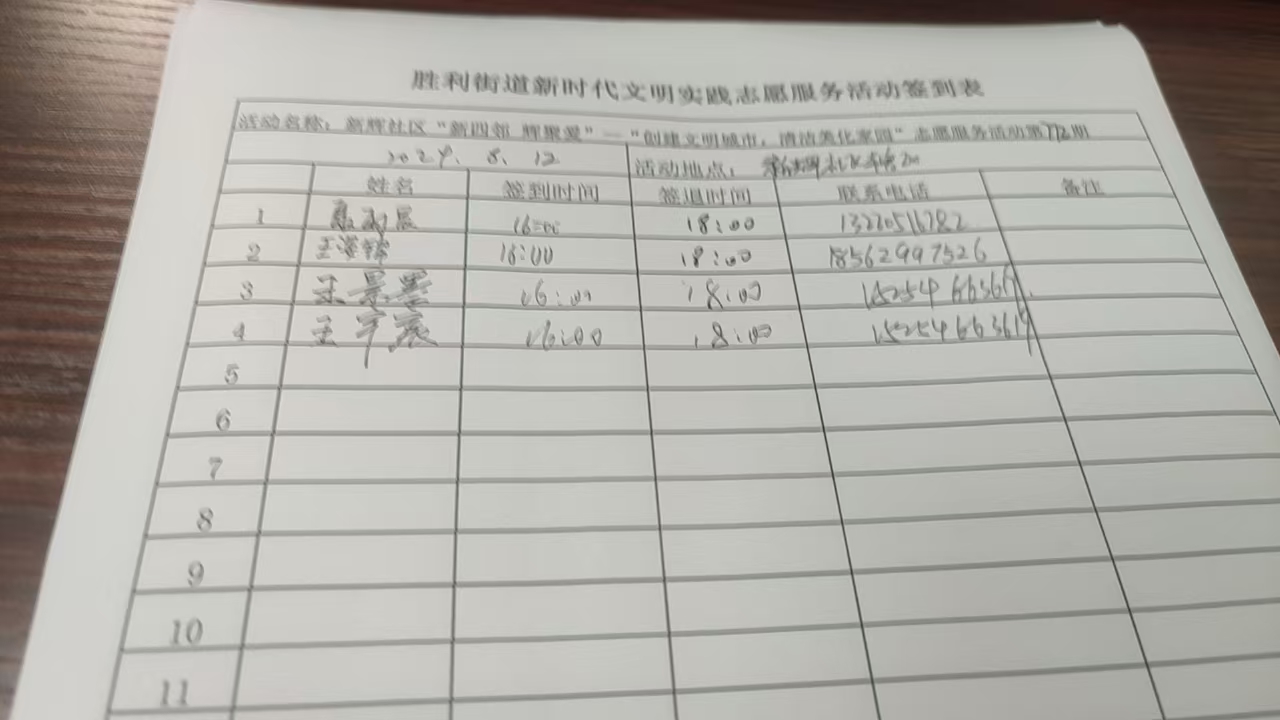 胜利街道新时代文明实践志愿服务活动签到表
活动名称：新辉社区“新四邻 辉聚爱”—“创建文明城市，清洁美化家园”志愿服务活动第112期
2024. 8. 12 活动地点：新辉社区
姓名 签到时间 签退时间 联系电话 备注
1 16:00 18:00 13220516782
2 王 16:00 18:00 18562997526
3 王景墨 16:00 18:00
4 王 16:00 18:00
5
6
7
8
9
10
11